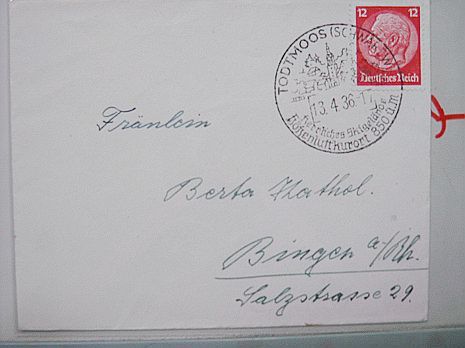 12 12
Deutsches Reich
TODTMOOS (SCHWARZW.)
13.4.36-17
Herrliches Skigelände
Höhenluftkurort 850 ü.m.
Fräulein
Berta Kathol.
Bingen a/Rh.
Salzstrasse 29.